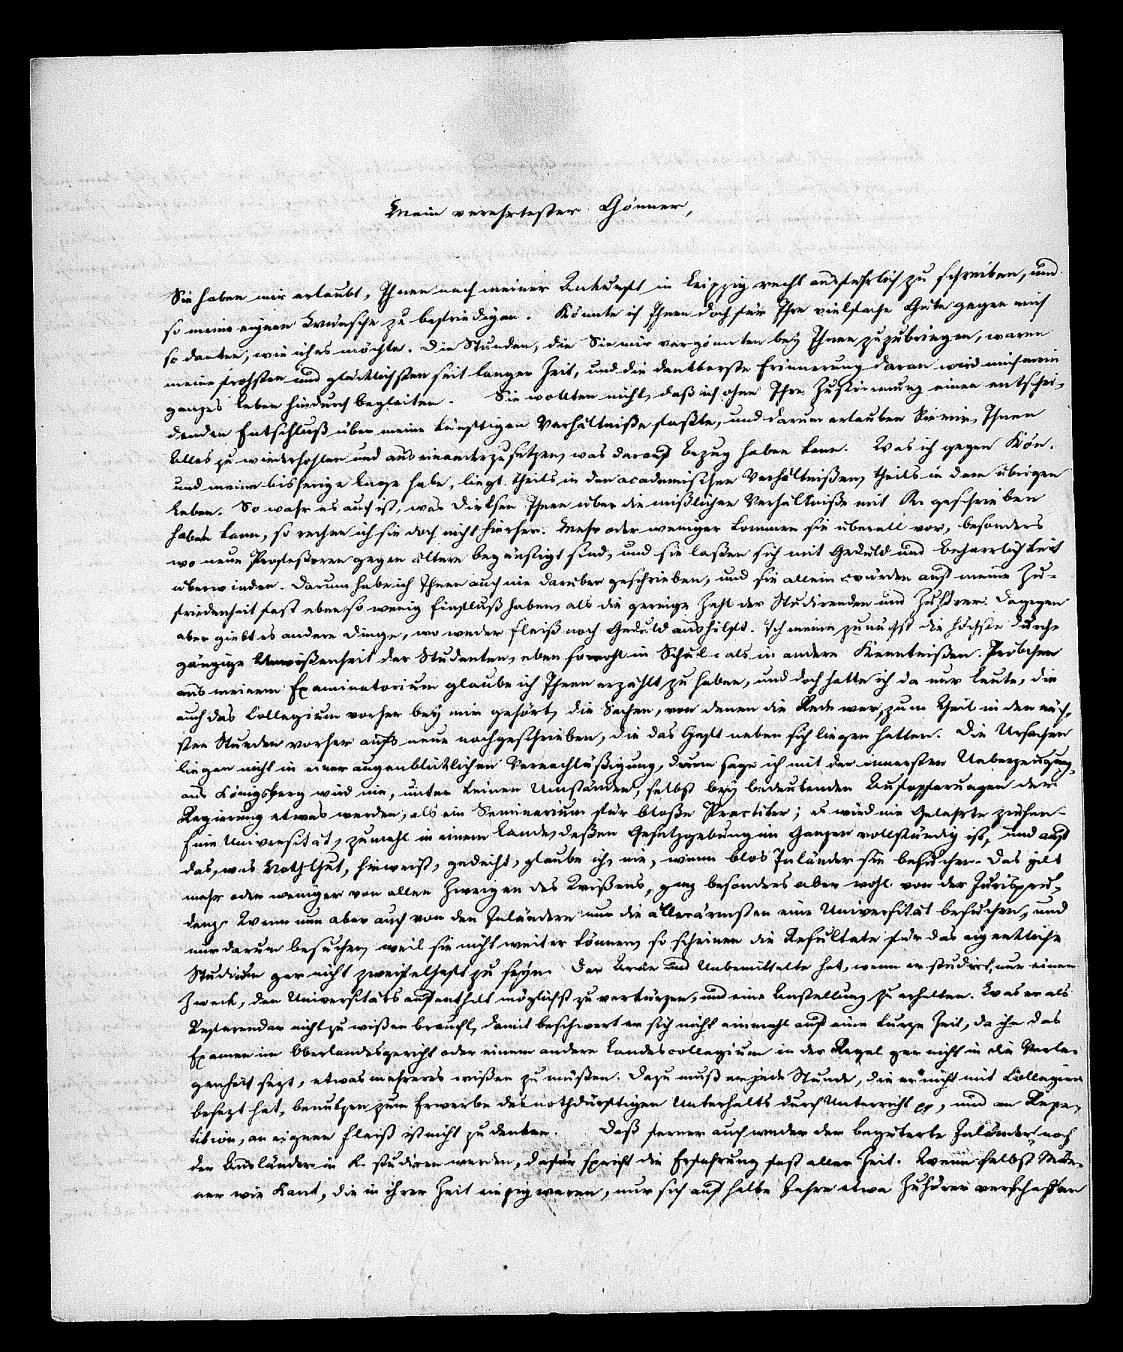 Mein verehrtester Gönner,
Sie haben mir erlaubt, Ihnen nach meiner Ankunft in Leipzig recht ausführlich zu schreiben, und
so meine eigenen Wünsche zu befriedigen. Könnte ich Ihnen doch für Ihre vielfache Güte gegen mich
so danken, wie ich es möchte. Die Stunden, die Sie mir vergönnten bey Ihnen zuzubringen, waren
meine frohsten und glücklichsten seit langer Zeit, und die dankbarste Erinnerung daran wird mich mein
ganzes Leben hindurch begleiten. Sie wollten nicht, daß ich ohne Ihre Zustimmung einen entschei-
denden Entschluß über meine künftigen Verhältniße faßte, und darum erlauben Sie mir, Ihnen
Alles zu wiederhohlen und aus einanderzusetzen, was darauf Bezug haben kann. Was ich gegen Kön.
und meine bisherige Lage habe, liegt theils in den academischen Verhältnißen, theils in dem übrigen
Leben. So wahr es auch ist, was Dirksen Ihnen über die mißlichen Verhältniße mit R. geschrieben
haben kann, so rechne ich sie doch nicht hierher. Mehr oder weniger kommen sie überall vor, besonders
wo neue Profeßoren gegen ältere begünstigt sind, und sie laßen sich mit Geduld und Beharrlichkeit
überwinden. Darum habe ich Ihnen auch nie darüber geschrieben, und sie allein würden auf meine Zu-
friedenheit fast eben so wenig Einfluß haben, als die geringe Zahl der Studirenden und Zuhörer. Dagegen
aber giebt es andere Dinge, wo weder Fleiß noch Geduld aushilft. Ich meine zunächst die höchste durch-
gängige Unwißenheit der Studenten, eben sowohl in Schul- als in andern Kenntnißen. Pröbchen
aus meinem Examinatorium glaube ich Ihnen erzählt zu haben, und doch hatte ich da nur Leute, die
auch das Collegium vorher bey mir gehört, die Sachen, von denen die Rede war, zum Theil in den näch-
sten Stunden vorher aufs neue nachgeschrieben, die das Heft neben sich liegen hatten. Die Ursachen
liegen nicht in einer augenblicklichen Vernachläßigung, darum sage ich mit der innersten Ueberzeugung,
aus Königsberg wird nie, unter keinen Umständen, selbst bey bedeutenden Aufopferungen der
Regierung etwas werden, als ein Seminarium für bloße Practiker; es wird nie Gelehrte ziehen.
Eine Universität, zumahl in einem Lande, deßen Gesetzgebung im Ganzen vollständig ist, und auf
das, was Noth thut, hinweist, gedeiht, glaube ich, nie, wenn blos Inländer sie besuchen. Das gilt
mehr oder weniger von allen Zweigen des Wißens, ganz besonders aber wohl von der Jurispru-
denz. Wenn nun aber auch von den Inländern nur die allerärmsten eine Universität besuchen, und
nur darum besuchen, weil sie nicht weiter können, so scheinen die Resultate für das eigentliche
Studium gar nicht zweifelhaft zu seyn. Der Arme und Unbemittelte hat, wenn er studirt, nur einen
Zweck, den Universitätsaufenthalt möglichst zu verkürzen, und eine Anstellung zu erhalten. Was er als
Referendar nicht zu wißen braucht, damit beschwert er sich nicht einmahl auf eine kurze Zeit, da ihn das
Examen im Oberlandesgericht oder einem andern Landescollegium in der Regel gar nicht in die Verle-
genheit sezt, etwas mehreres wißen zu müßen. Dazu muß er jede Stunde, die er nicht mit Collegien
besezt hat, benutzen zum Erwerbe des nothdürftigen Unterhalts durch Unterricht pp, und an Repe-
tition, an eignen Fleiß ist nicht zu denken. Daß ferner auch weder der begüterte Inländer, noch
der Ausländer in K. studiren werden, dafür spricht die Erfahrung fast aller Zeit. Wenn selbst Män-
ner wie Kant, die in ihrer Zeit einzig waren, nur sich auf halbe Jahre etwa Zuhörer verschaffen